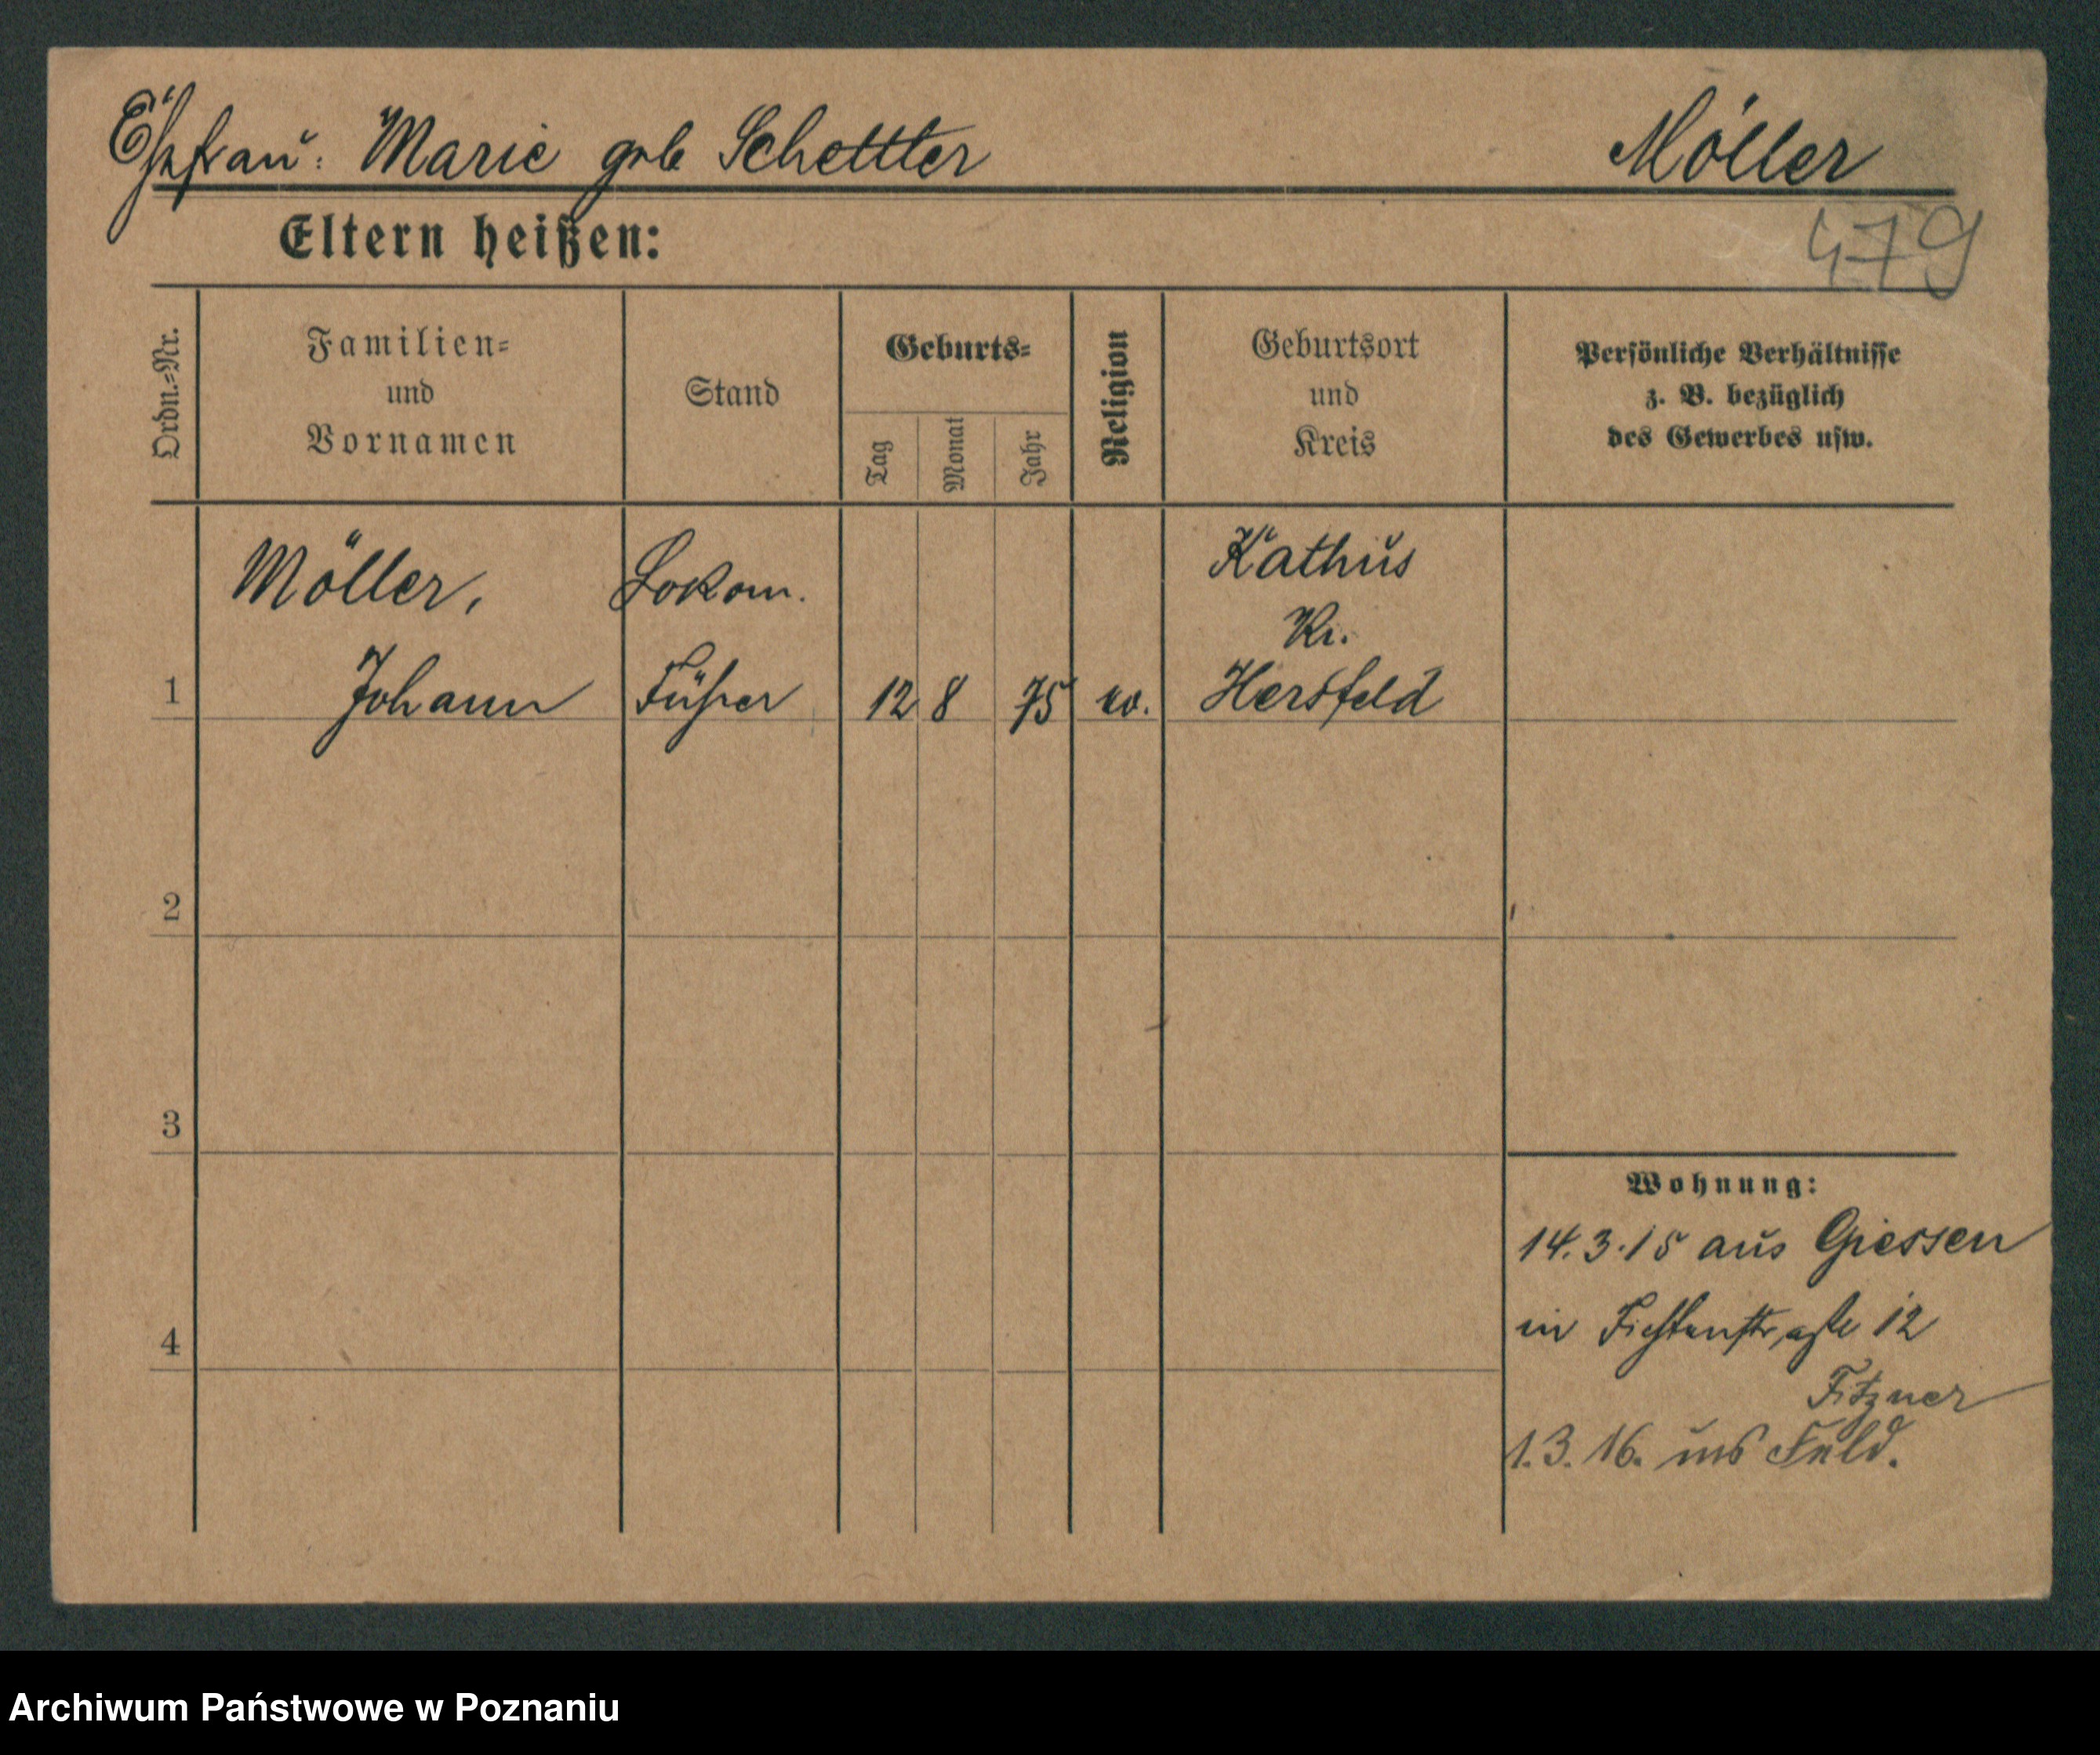 Ehefrau: Marie geb Schettler Möller
Eltern heißen:
479
Ordn.=Nr.
Familien=
und
Vornamen
Stand
Geburts=
Tag
Monat
Jahr
Religion
Geburtsort
und
Kreis
Persönliche Verhältnisse
z. B. bezüglich
des Gewerbes usw.
Möller, Lokom. Kathus
Kr.
1 Johann Führer 12 8 75 ev. Hersfeld
2
3
Wohnung:
14.3.15 aus Giessen
4
in Fichtenstraße 12
Fitzner
1.3.16. ins Feld.
Archiwum Państwowe w Poznaniu